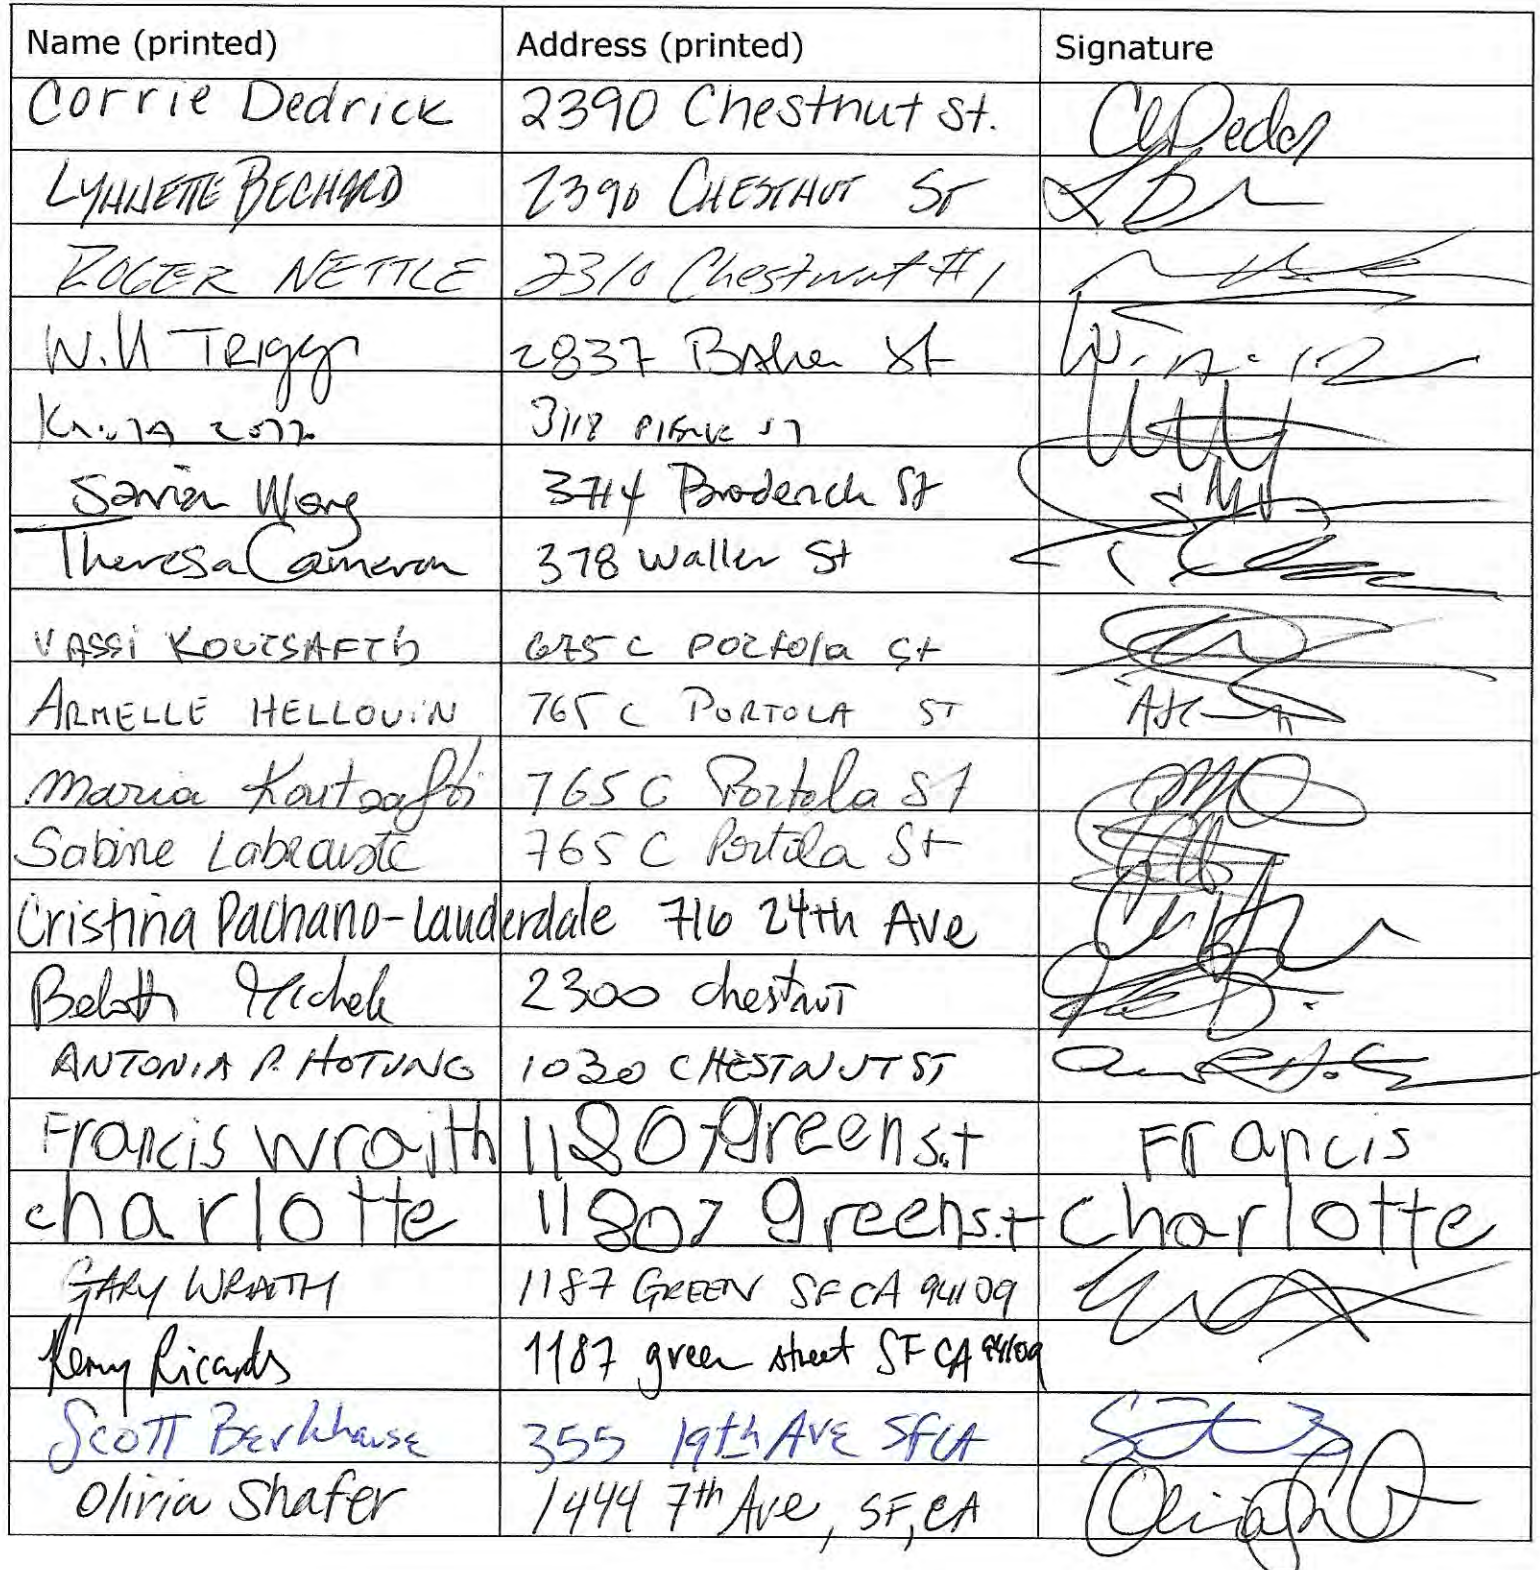 Name (printed) Address (printed) Signature
Corrie Dedrick 2390 Chestnut St.
LYNNETTE BECHARD 2390 CHESTNUT ST
ROGER NETTLE 2310 Chestnut #1
Will TRIGGS 2837 Baker St
3118 PIERCE ST
Wong 3714 Broderick St
Theresa Cameron 378 Waller St
VASSi KOUTSAFTIS 675 C PORtola St
ARMELLE HELLOUiN 765 C PORTOLA ST
Maria Koutsaftis 765 C Portola St
Sabine Labrouste 765 C Portola St
Cristina Pachano-Lauderdale 716 24th Ave
Belotti Michele 2300 chestnuT
ANTONIA P. HOTUNG 1030 CHESTNUT ST
Francis wraith 1180 greens.t Francis
charlotte 11807 greens.t charlotte
GARY WRAITH 1187 GREEN SF CA 94109
Remy Ricards 1187 green street SF CA 94109
Scott Berkhouse 355 19th Ave SFCA
Olivia Shafer 1444 7th Ave, SF, CA